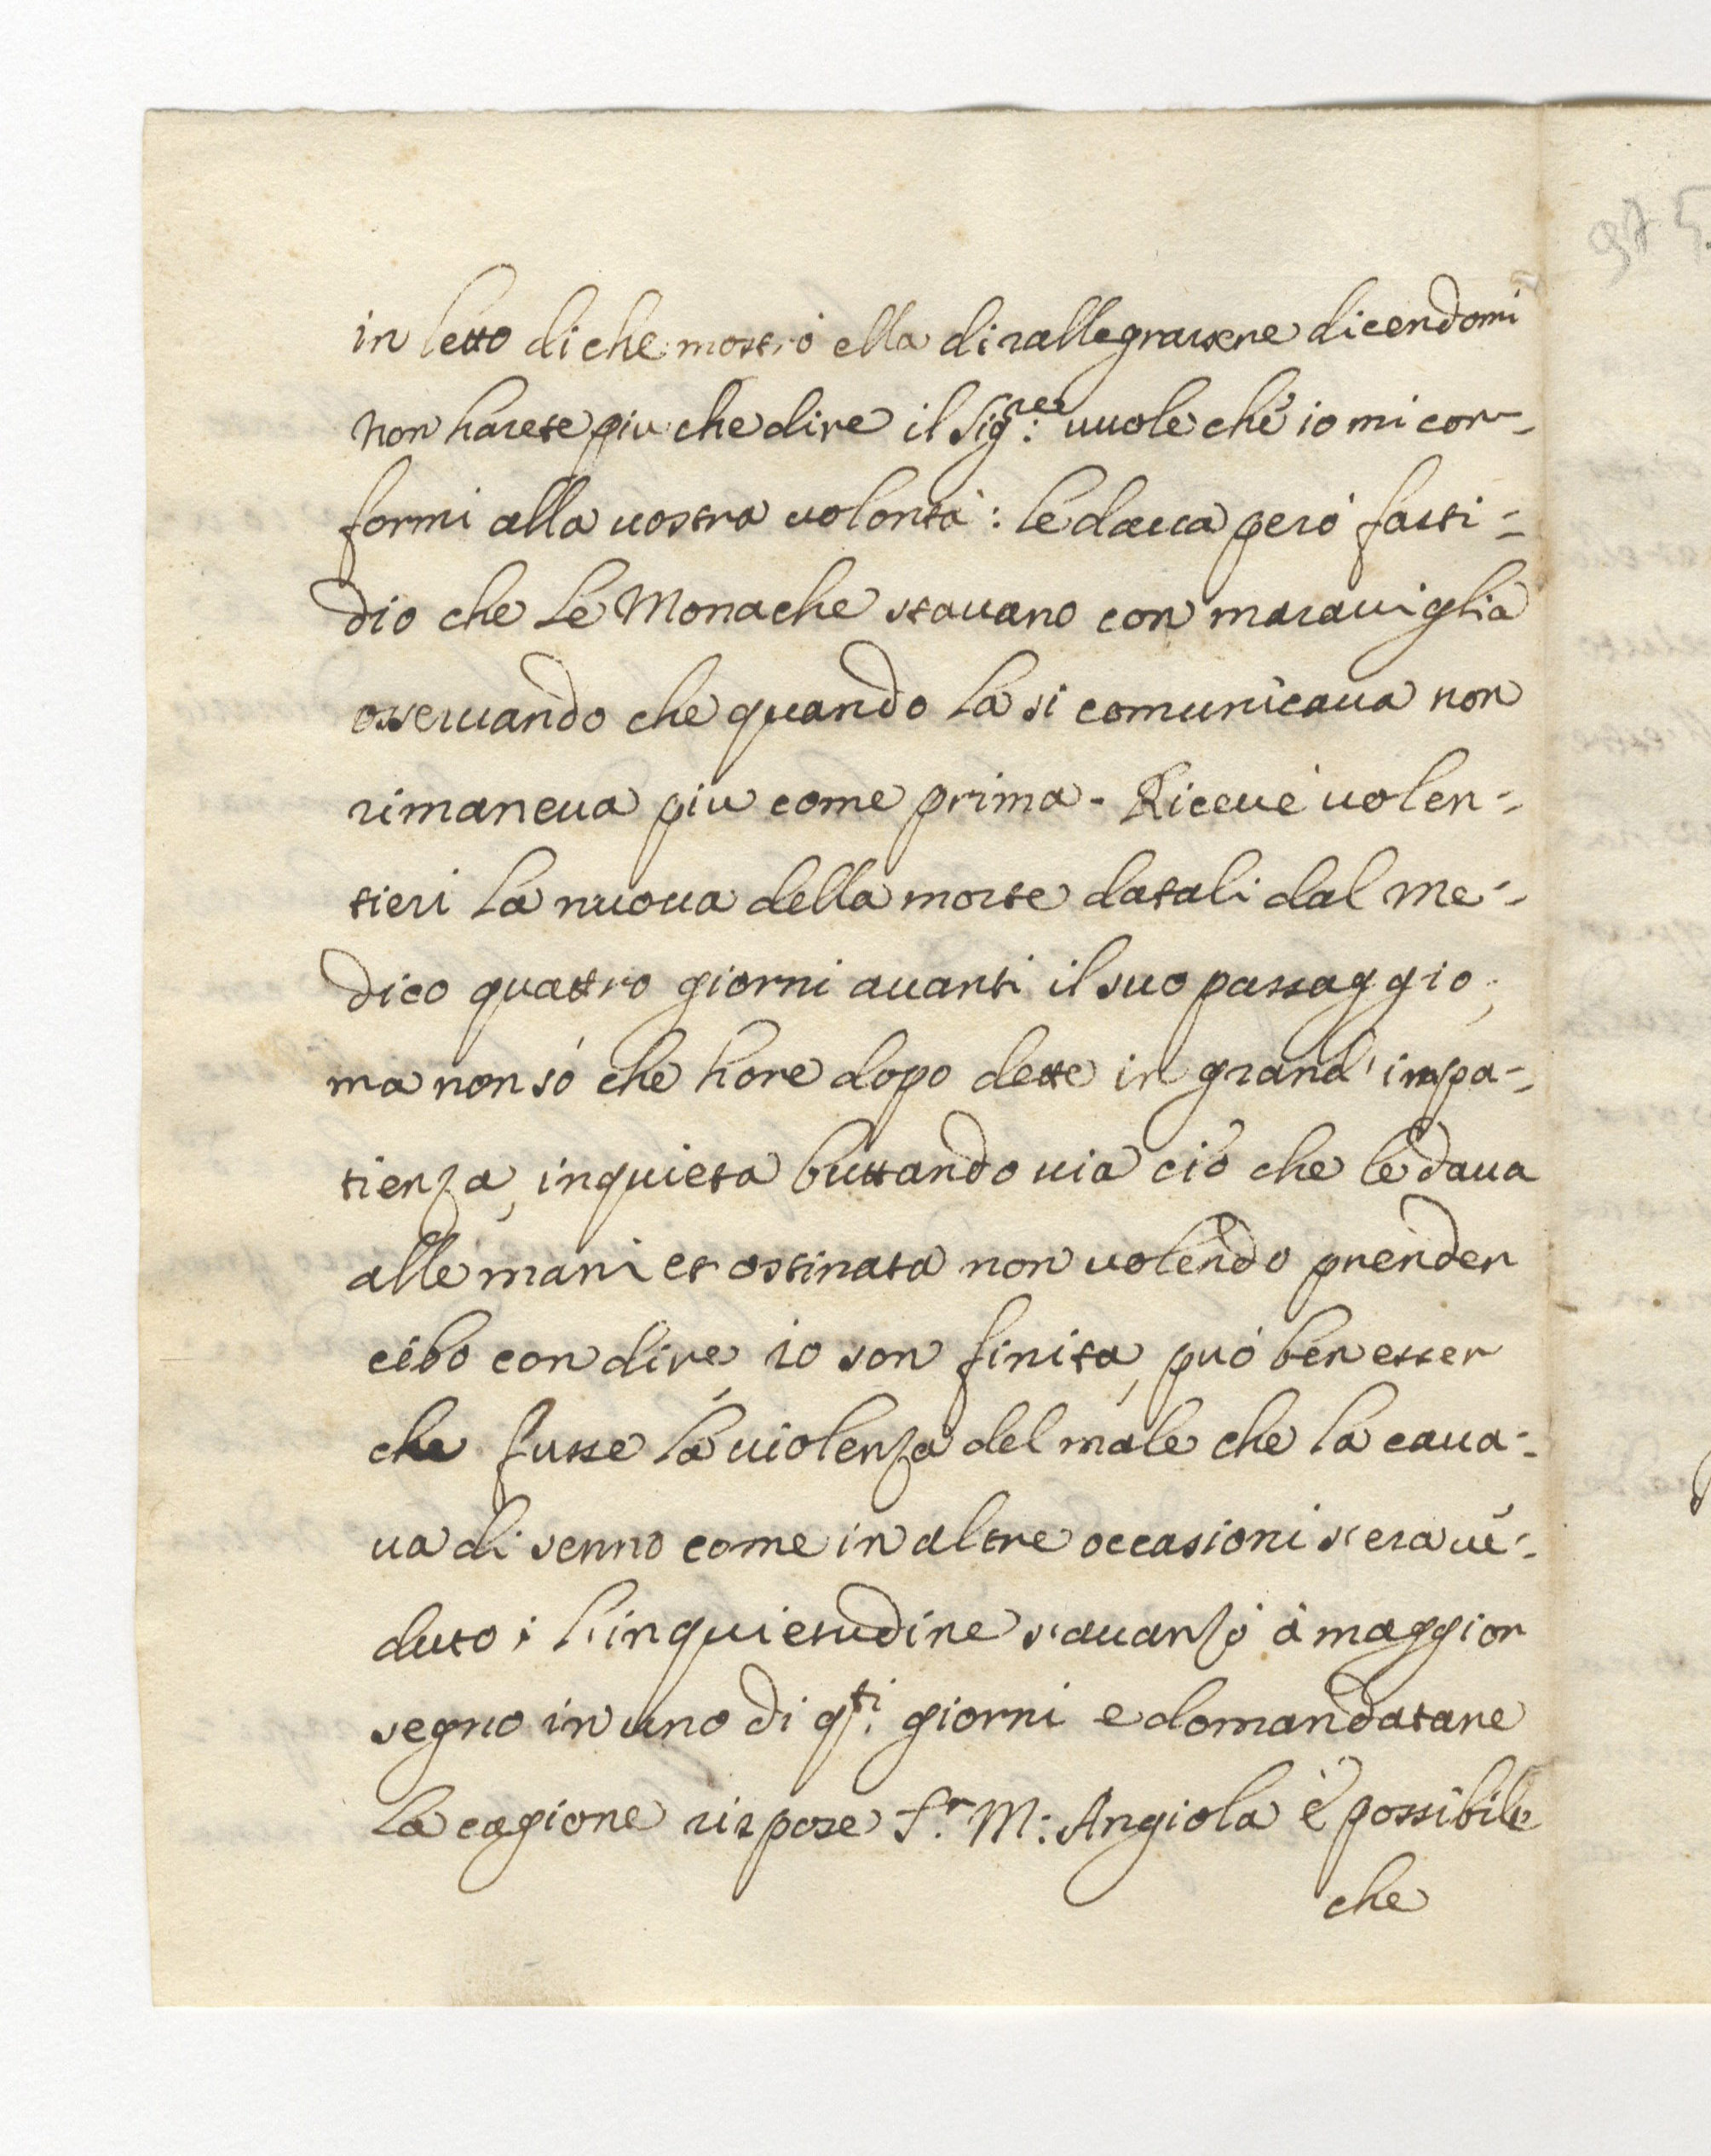 in letto di che mostrò ella di rallegrarsene dicendomi
non harete piu che dire il Sig:re vuole che io mi con-
formi alla uostra uolontà: le daua però fasti=
dio che le Monache stauano con marauiglia
osseruando che quando la si comunicaua non
rimaneua piu come prima. Riceuè uolen=
tieri la nuoua della morte datali dal me=
dico quattro giorni auanti il suo passaggio;
ma non só che hore dopo dette in grand' impa=
tienza, inquieta buttando uia ciò che le daua
alle mani et ostinata non uolendo prender
cibo con dire io son finita, può ben esser
che fusse la uiolenza del male che la caua=
ua di senno come in altre occasioni s'era ue=
duto; l'inquietudine s'auanzò à maggior
segno in uno di q:sti giorni e domandatane
la cagione rispose S.r M: Angiola è possibile
che